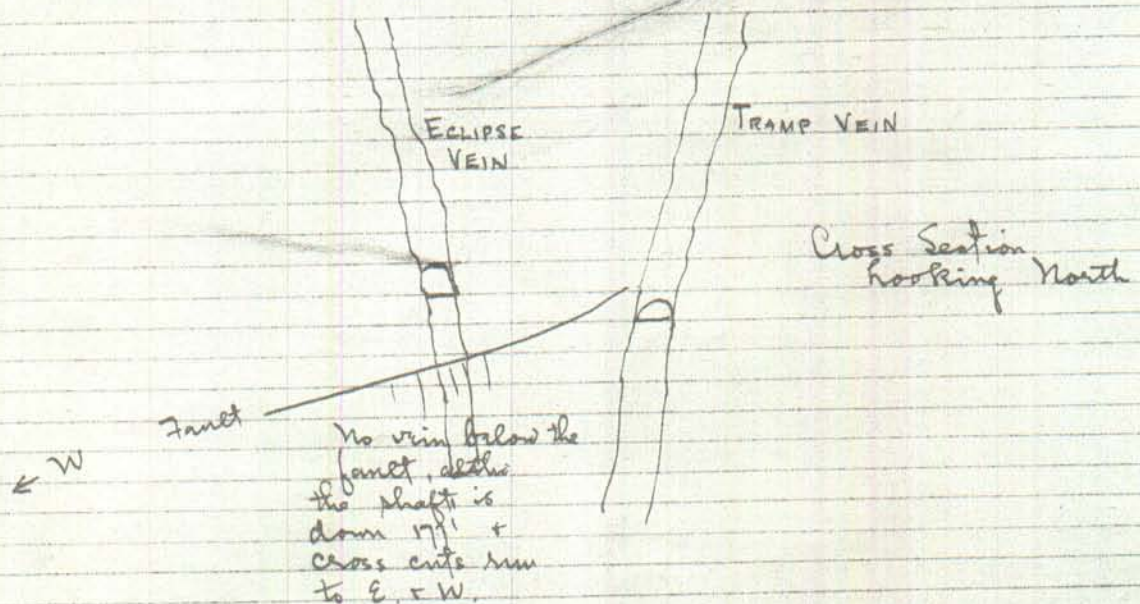 ECLIPSE
VEIN
TRAMP VEIN
Cross Section
Looking North
Fault
W
No vein below the
fault, altho
the shaft is
down &
cross cuts run
to E. & W.